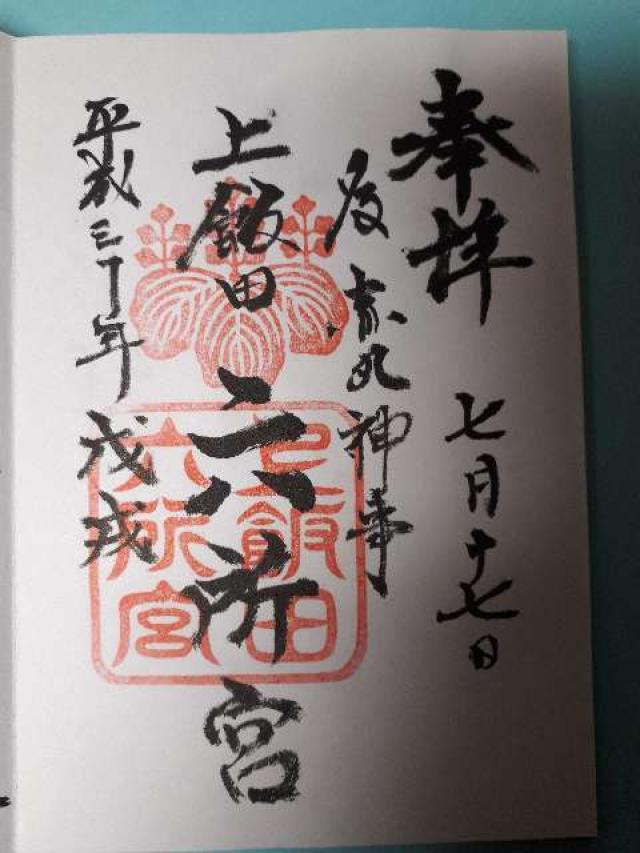 奉拝
七月十七日
神事
上飯田 六所宮
平成三十年 戊戌
上飯田
六所宮